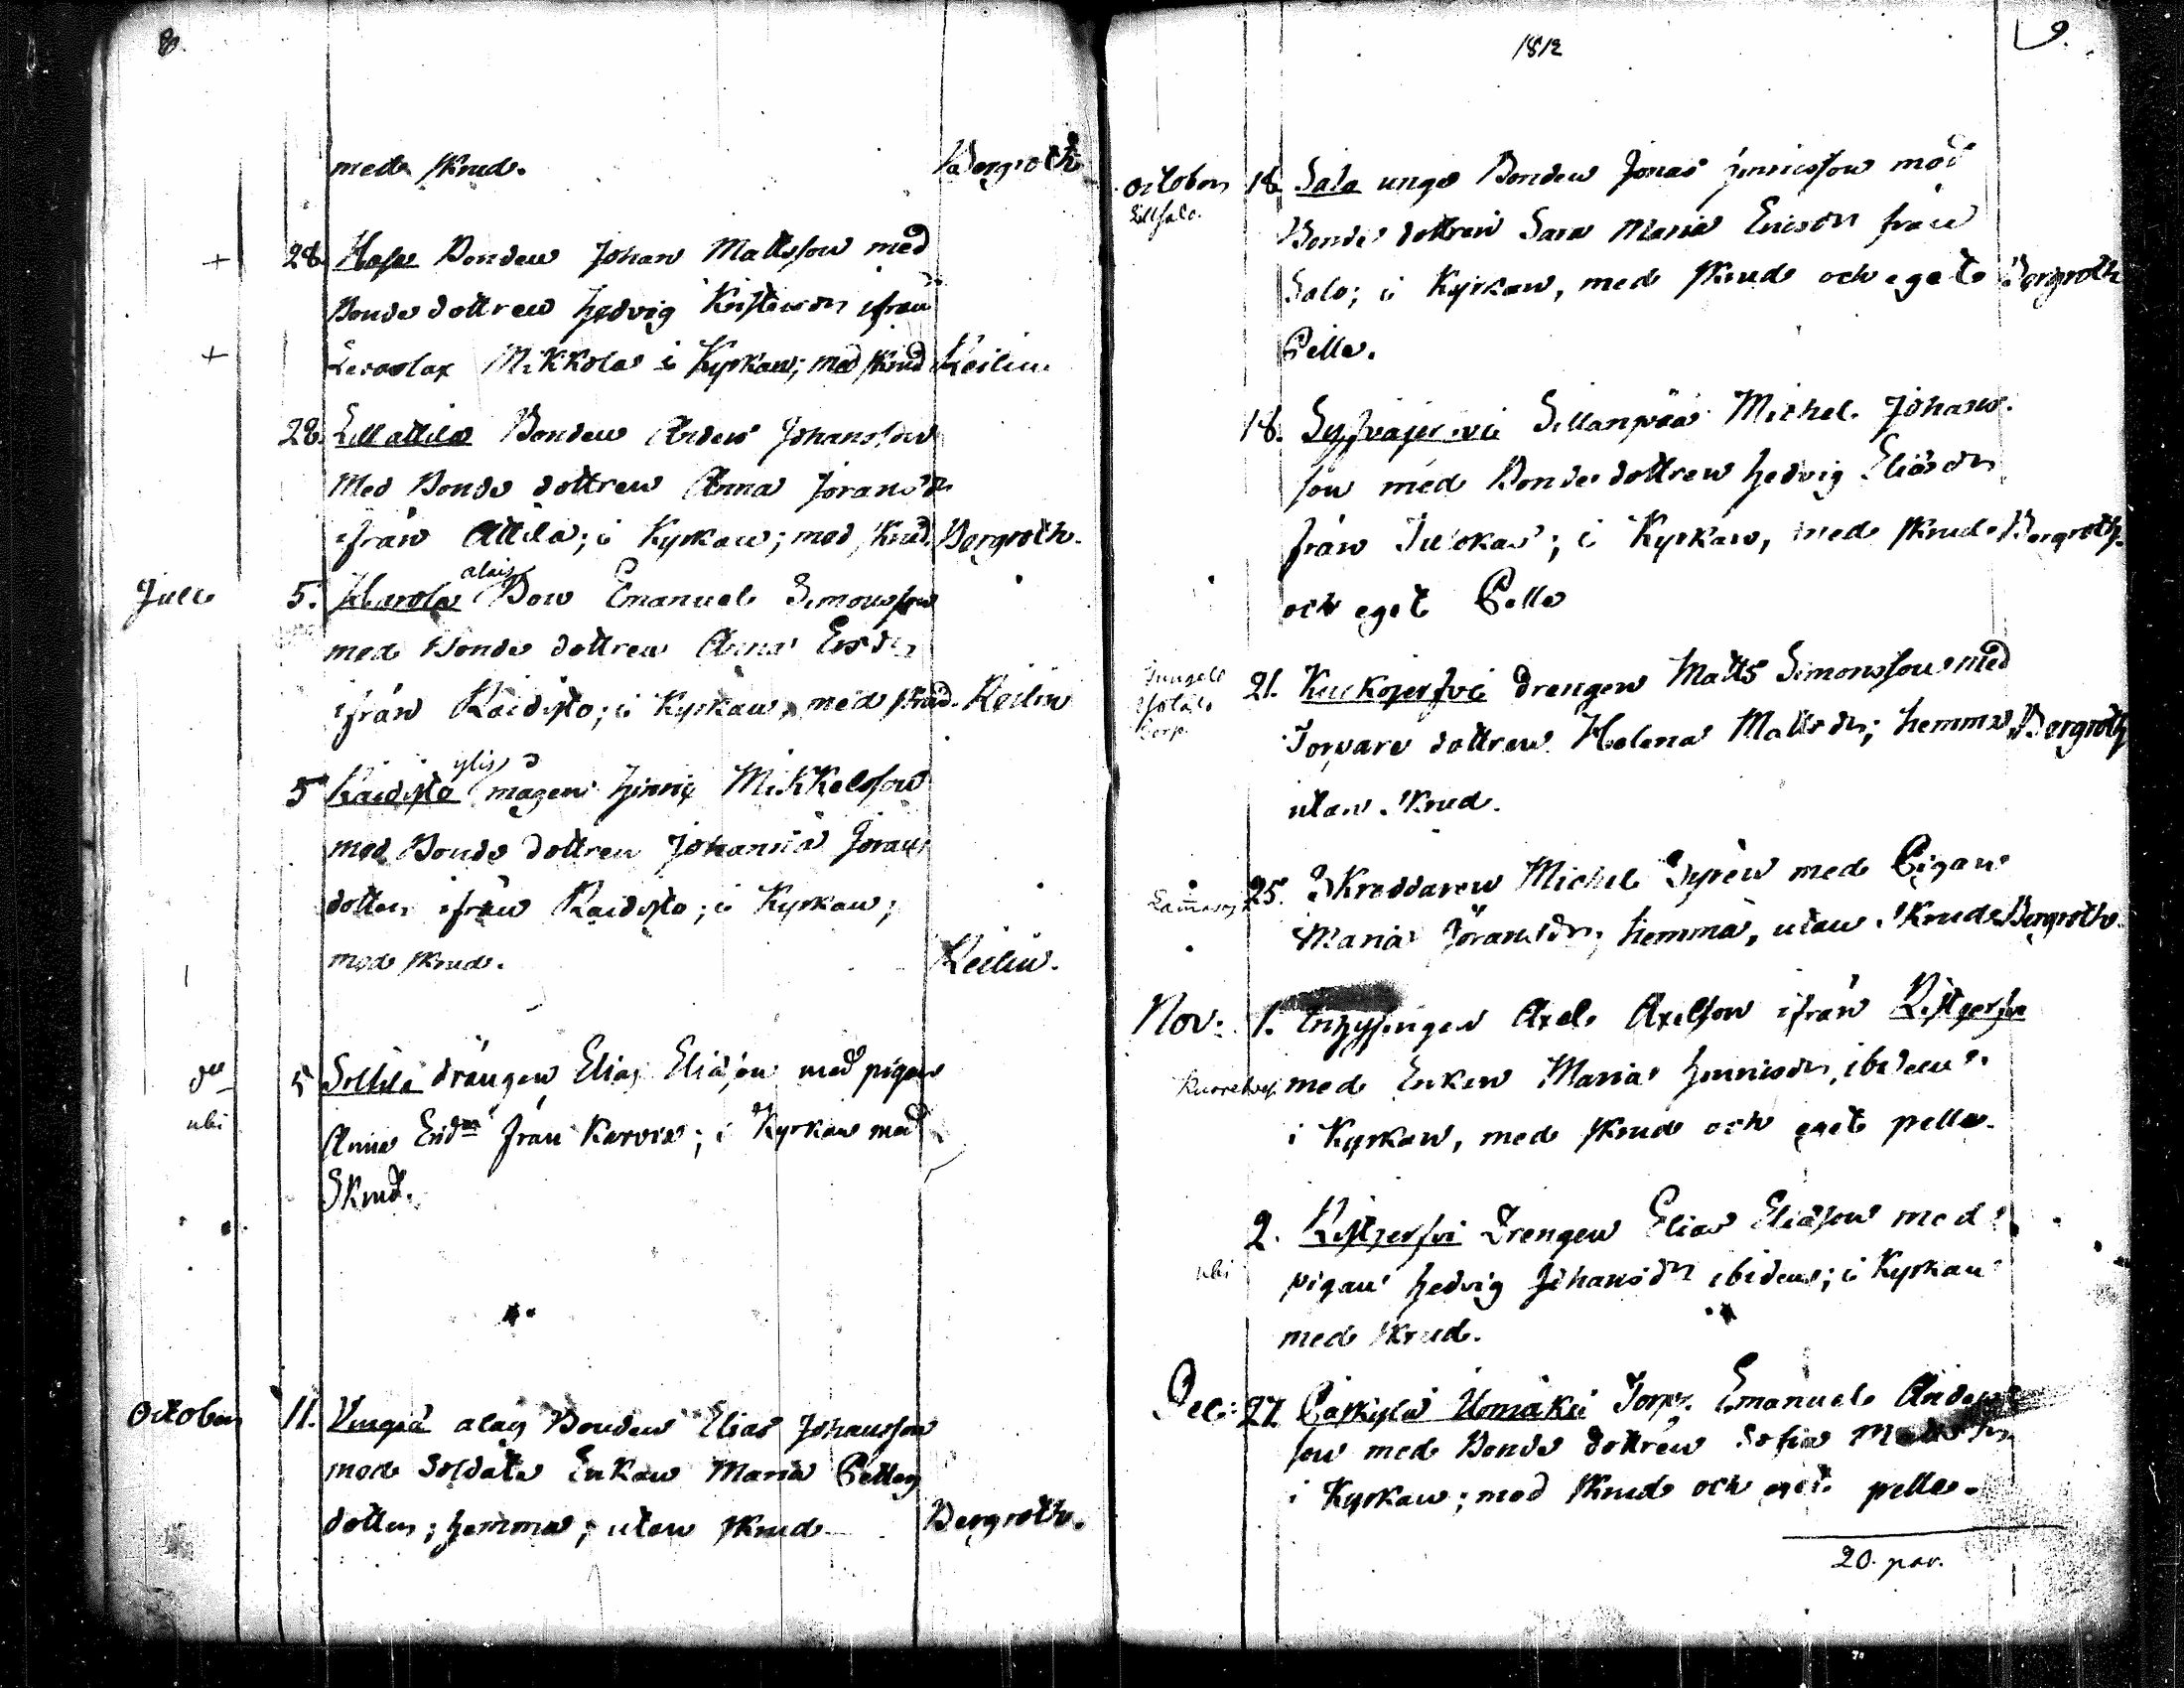 8.
med skrud. Bergroth
28. Bonden Johan Mattsson med
Bonde dottren Hedvig ifrån
Mikkola i Kyrkan; med skrud Keilin.
28. Lill attila Bonden Anders Johansson
Med Bonde dottren Anna Göransdr
ifrån Attila; i Kyrkan; med skrud. Bergroth.
Julii 5. Karola alais Bon Emanuel Simonsson
med Bonde dottren Anna
ifrån Raidisto; i Kyrkan, med skrud. Keilin
5 Raidisto ylis mågen Hinric Mikkelsson
med Bonde dottren Johanna Göran
dotter ifrån Raidisto; i Kyrkan;
med skrud. Keilin.
5 Soltila drängen Elias Eliasson med pigan
ubi Anna från Karvia; i Kyrkan med
Skrud.
October 11. alais Bonden Elias Johansson
med Soldats Enkan Maria Petters
dotter; hemma; utan skrud. Bergroth.
1812
9.
October 18. Salo unge Bonden Jonas Henricsson med
Lillsalo. Bonde dottren Sara Maria Ericsdr från
Salo; i Kyrkan, med skrud och eget Bergroth
Pelle.
18. Sillanpää Michel Johans
son med Bonde dottren Hedvig Eliasdr
från; i Kyrkan, med skrud Bergroth.
och eget Pelle
21. Kuckojerfvi Drengen Matts Simonsson med
Torpare dottren Helena Mattsdr; hemma, Bergroth
utan skrud.
25. Skreddaren Michel Syrén med Pigan
Maria Göransdr, hemma, utan skrud Bergroth.
Nov: 1. Axel Axelsson ifrån Ristjerfvi
med Enkan Maria Henricsdr, ibidem
i Kyrkan, med skrud och eget pelle.
2. Ristjerfvi Drengen Elias Eliasson med
ubi pigan Hedvig Johansdr ibidem; i Kyrkan
med skrud.
Dec: 27. Torp. Emanuel Anders
son med Bonde dottren Sofia
i Kyrkan; med skrud och eget pelle.
20. par.